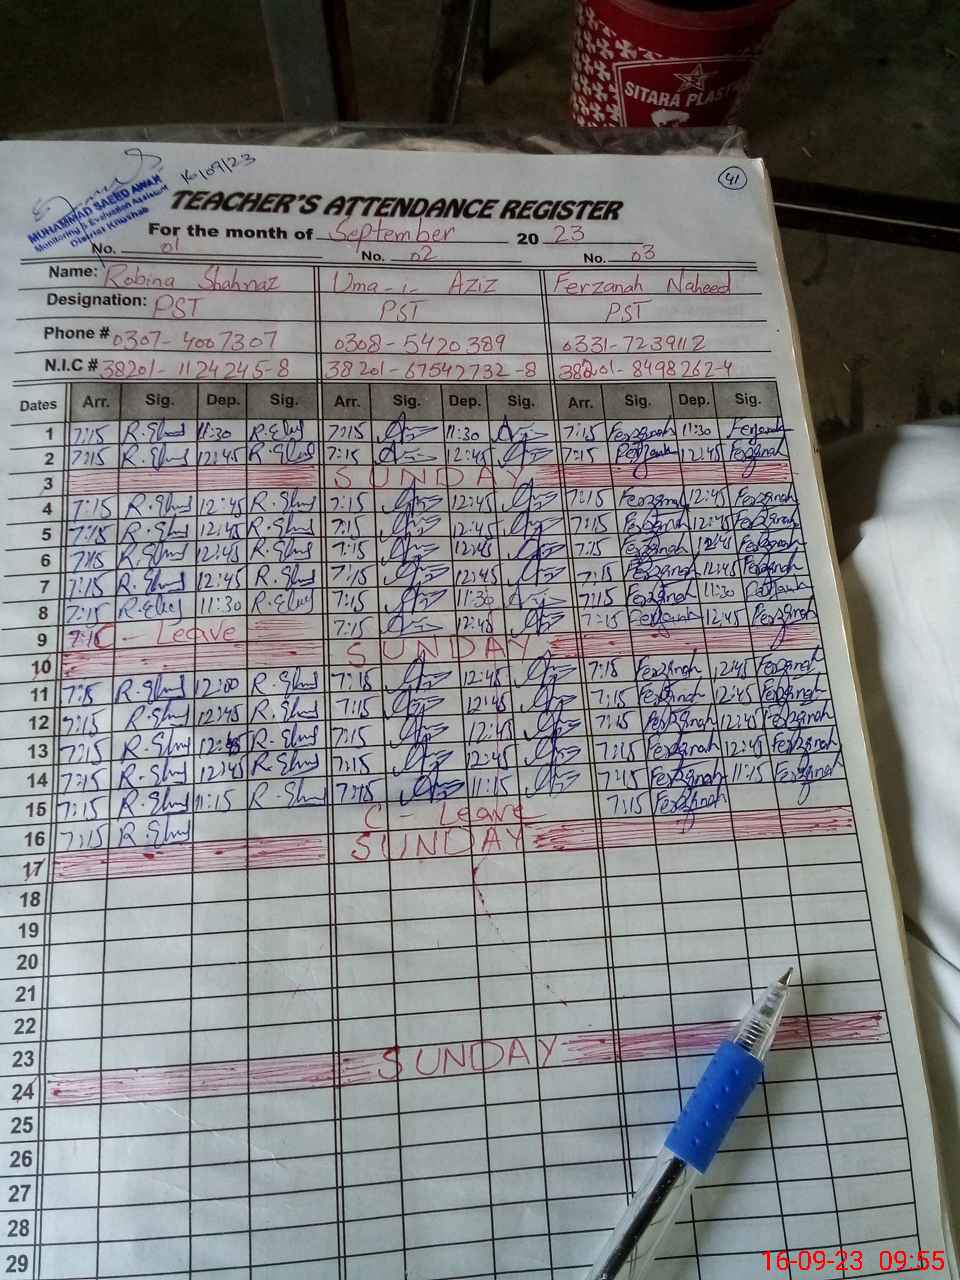 SITARA PLAST
16/09/23
41
MUHAMMAD SAEED AWAN
Monitoring & Evaluation Assistant
District Khushab
TEACHER'S ATTENDANCE REGISTER
For the month of September 20 23
No. 01 No. 02 No. 03
Name: Robina Shahnaz Uma-i- Aziz Ferzanah Naheed
Designation: PST PST PST
Phone # 0307-4007307 0308-5420389 0331-7239112
N.I.C # 38201-1124245-8 38201-67542732-8 38201-8498262-4
Dates Arr. Sig. Dep. Sig. Arr. Sig. Dep. Sig. Arr. Sig. Dep. Sig.
1 7:15 11:30 7:15 11:30 7:15 Ferzanah 11:30 Ferzanah
2 7:15 12:45 7:15 12:45 7:15 Ferzanah 12:45 Ferzanah
3 SUNDAY
4 7:15 12:45 7:15 12:45 7:15 Ferzanah 12:45 Ferzanah
5 7:15 12:45 7:15 12:45 7:15 Ferzanah 12:45 Ferzanah
6 7:15 12:45 7:15 12:45 7:15 Ferzanah 12:45 Ferzanah
7 7:15 12:45 7:15 12:45 7:15 Ferzanah 12:45 Ferzanah
8 7:15 11:30 7:15 11:30 7:15 Ferzanah 11:30 Ferzanah
9 C - Leave 7:15 12:45 7:15 Ferzanah 12:45 Ferzanah
10 SUNDAY
11 7:15 12:00 7:15 12:45 7:15 Ferzanah 12:45 Ferzanah
12 7:15 12:45 7:15 12:45 7:15 Ferzanah 12:45 Ferzanah
13 7:15 12:45 7:15 12:45 7:15 Ferzanah 12:45 Ferzanah
14 7:15 12:45 7:15 12:45 7:15 Ferzanah 12:45 Ferzanah
15 7:15 11:15 7:15 11:15 7:15 Ferzanah 11:15 Ferzanah
16 7:15 C - Leave 7:15 Ferzanah
17 SUNDAY
18
19
20
21
22
23
24 SUNDAY
25
26
27
28
29
16-09-23 09:55